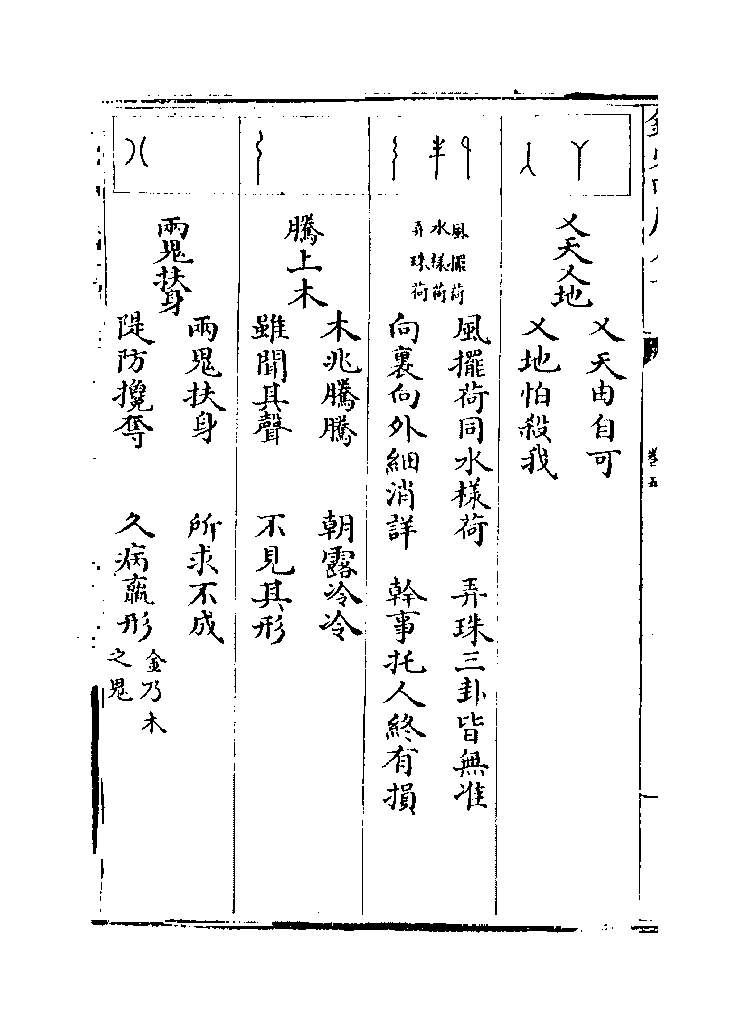 乂天乂地
乂天由自可
乂地怕殺我
風擺荷
水樣荷
弄珠荷
風擺荷同水樣荷　弄珠三卦皆無准
向裏向外細消詳　幹事托人終有損
騰上木
木兆騰騰　朝露冷冷
雖聞其聲　不見其形
兩鬼扶身
兩鬼扶身　所求不成
隄防攙奪　久病羸形
金乃木
之鬼
卷五